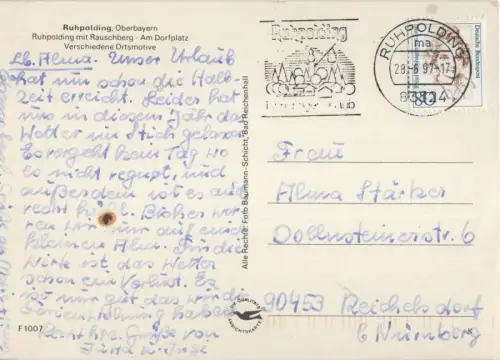 Ruhpolding, Oberbayern
Ruhpolding mit Rauschberg - Am Dorfplatz
Verschiedene Ortsmotive
Lb. Alma. Unser Urlaub
hat nun schon die Halb-
zeit erreicht. Leider hat
uns in diesem Jahr das
Wetter im Stich gelassen
Es vergeht kein Tag wo
es nicht regnet, und
außerdem ist es auch
recht Bisher wa-
ren wir nur auf einer
kleinen Alm. Für die
Wirte ist das Wetter
schon ein Verlust. Es
ist nur gut das wir die
Ferienwohnung haben
Grüße von
F1007
Alle Rechte: Foto Baumann-Schicht, Bad Reichenhall
Ruhpolding
RUHPOLDING
ma
28.-6 97.-17
83324
80
Deutsche Bundespost
Frau
Alma Stärker
Dollnsteinerstr. 6
90453 Reichelsdorf
b Nürnberg
K